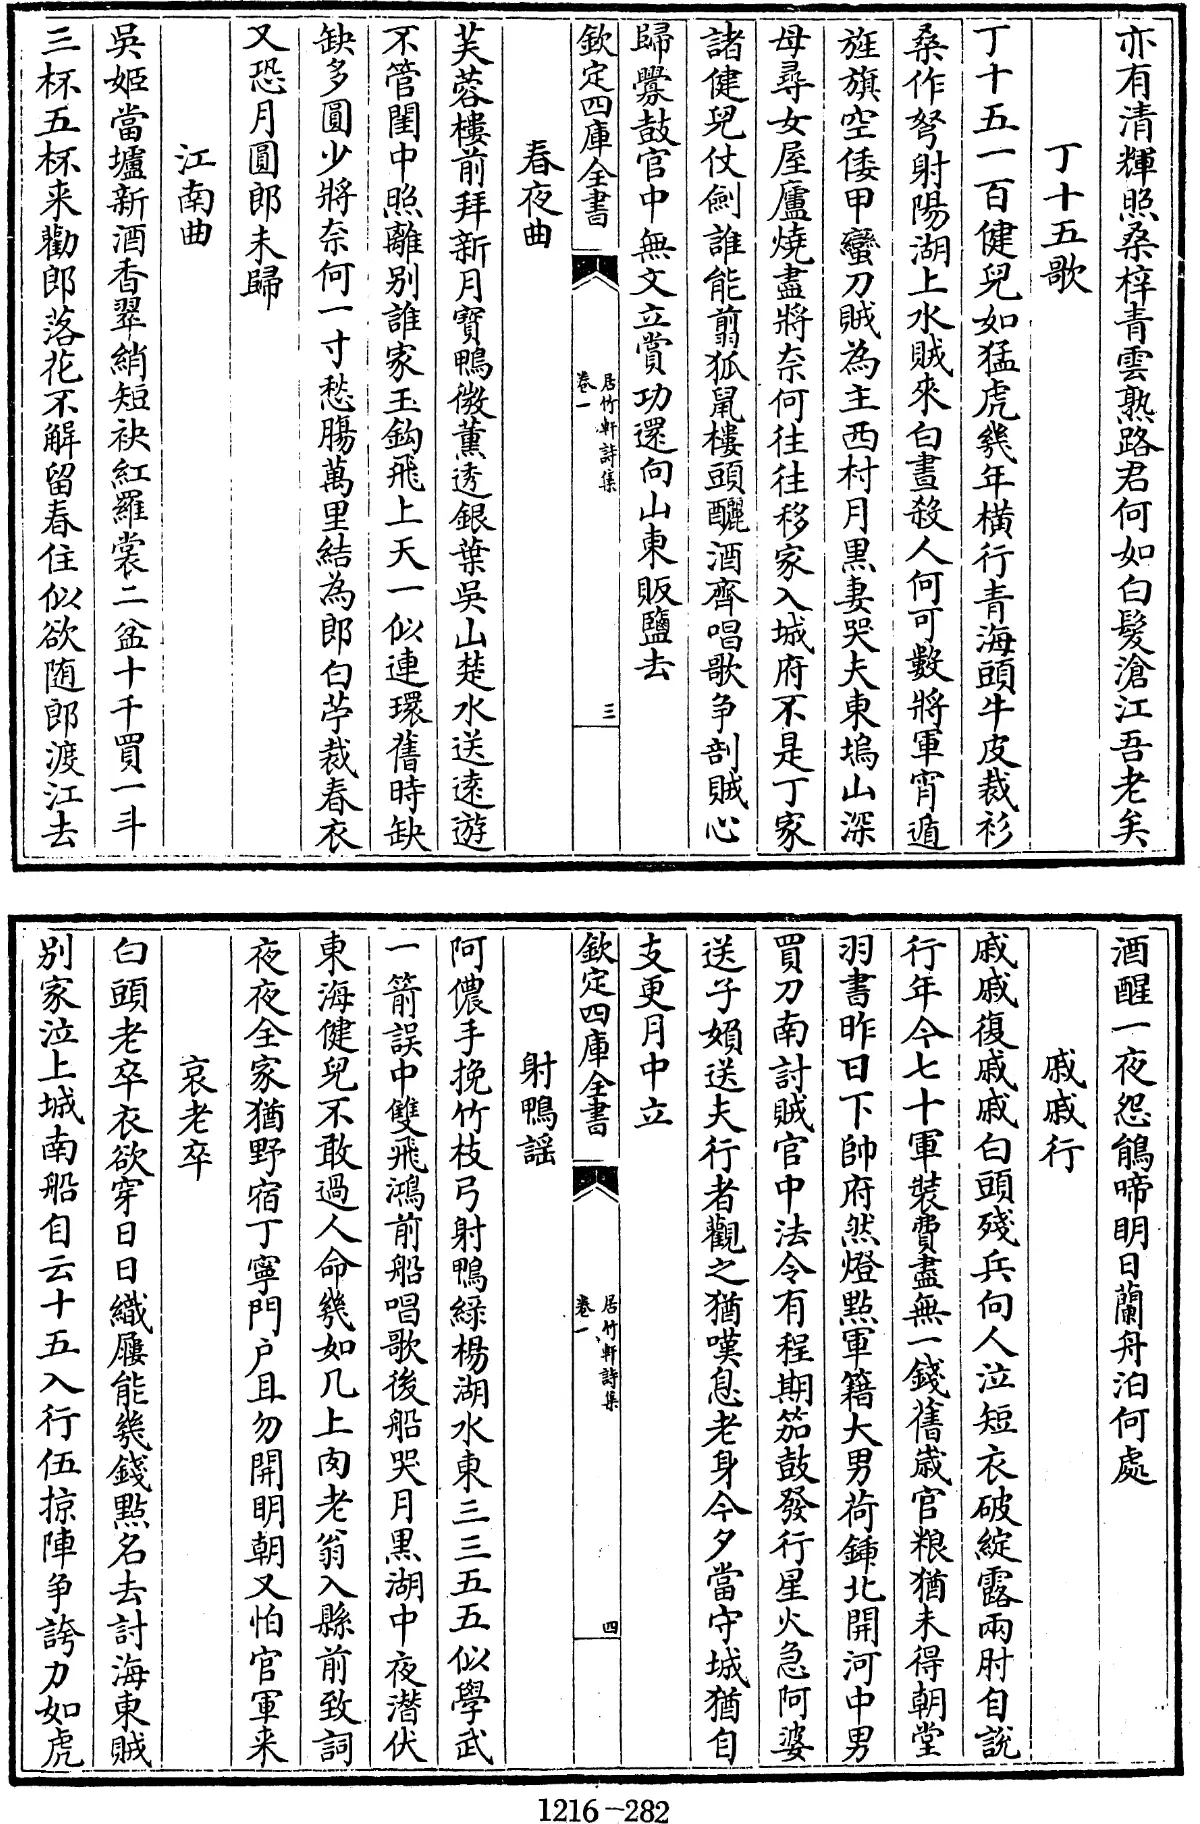 亦有清輝照桑梓青雲熟路君何如白髮滄江吾老矣
丁十五歌
丁十五一百健兒如猛虎幾年横行青海頭牛皮裁衫
桑作弩射陽湖上水賊來白晝殺人何可數將軍宵遁
旌旗空倭甲蠻刀賊為主西村月黒妻哭夫東塢山深
母尋女屋廬燒盡將奈何往往移家入城府不是丁家
諸健兒仗劍誰能翦狐䑕樓頭釃酒齊唱歌争剖賊心
歸釁鼓官中無文立賞功還向山東販鹽去
欽定四庫全書
居竹軒詩集
卷一
三
春夜曲
芙蓉樓前拜新月寳鴨微薫透銀葉吳山楚水送逺遊
不管閨中照離别誰家玉鈎飛上天一似連環舊時缺
缺多圓少將奈何一寸愁腸萬里結為郎白苧裁春衣
又恐月圓郎未歸
江南曲
吳姬當壚新酒香翠綃短袂紅羅裳二盆十千買一斗
三杯五杯来勸郎落花不解留春住似欲随郎渡江去
酒醒一夜怨鵑啼明日蘭舟泊何處
戚戚行
戚戚復戚戚白頭殘兵向人泣短衣破綻露兩肘自說
行年今七十軍裝費盡無一錢舊歲官粮猶未得朝堂
羽書昨日下帥府然燈點軍籍大男荷鍤北開河中男
買刀南討賊官中法令有程期笳鼓發行星火急阿婆
送子媍送夫行者觀之猶嘆息老身今夕當守城猶自
支更月中立
欽定四庫全書
居竹軒詩集
卷一
四
射鴨謡
阿儂手挽竹枝弓射鴨緑楊湖水東三三五五似學武
一箭誤中雙飛鴻前船唱歌後船哭月黒湖中夜潜伏
東海健兒不敢過人命幾如几上肉老翁入縣前致詞
夜夜全家猶野宿丁寧門户且勿開明朝又怕官軍来
哀老卒
白頭老卒衣欲穿日日織屨能幾錢點名去討海東賊
别家泣上城南船自云十五入行伍掠陣争誇力如虎
1216-282